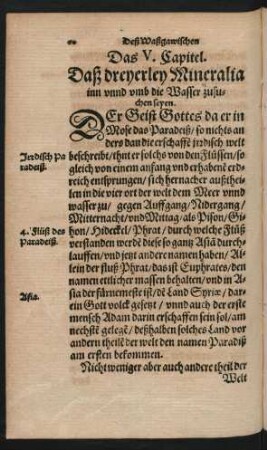 Deß Waßgawischen
Das V. Capitel.
Daß dreyerley Mineralia
inn vnnd vmb die Wasser zusu-
chen seyen.
DEr Geist Gottes da er in
Mose das Paradeiß / so nichts an
ders dan die erschaffẽ jrdisch welt
Irrdisch Pa
radeiß.
beschreibt / thut er solchs von den Flüssen / so
gleich von einem anfang vnd erhabenẽ erd-
reich entsprungen / sich hernacher außthei-
len in die vier ort der welt dem Meer vnnd
wasser zu / gegen Auffgang / Nidergang /
Mitternacht / vnd Mittag / als Pison / Gi-
hon / Hideckel / Phrat / durch welche Flüß
4. Flüß des
Paradeiß.
verstanden werdẽ diese so gantz Asiã durch-
lauffen / vnd jetzt andere namen haben / Al-
lein der fluß Phrat / das ist Euphrates / den
namen ettlicher massen behalten / vnd in A-
Asia.
sia der fürnemeste ist / dẽ Land Syriæ / dar-
ein Gott volck gesetzt / vnnd auch der erste
mensch Adam darin erschaffen sein sol / am
nechstẽ gelegẽ / deßhalben solches Land vor
andern theilẽ der welt den namen Paradiß
am ersten bekommen.
Nicht weniger aber auch andere theil der
Welt